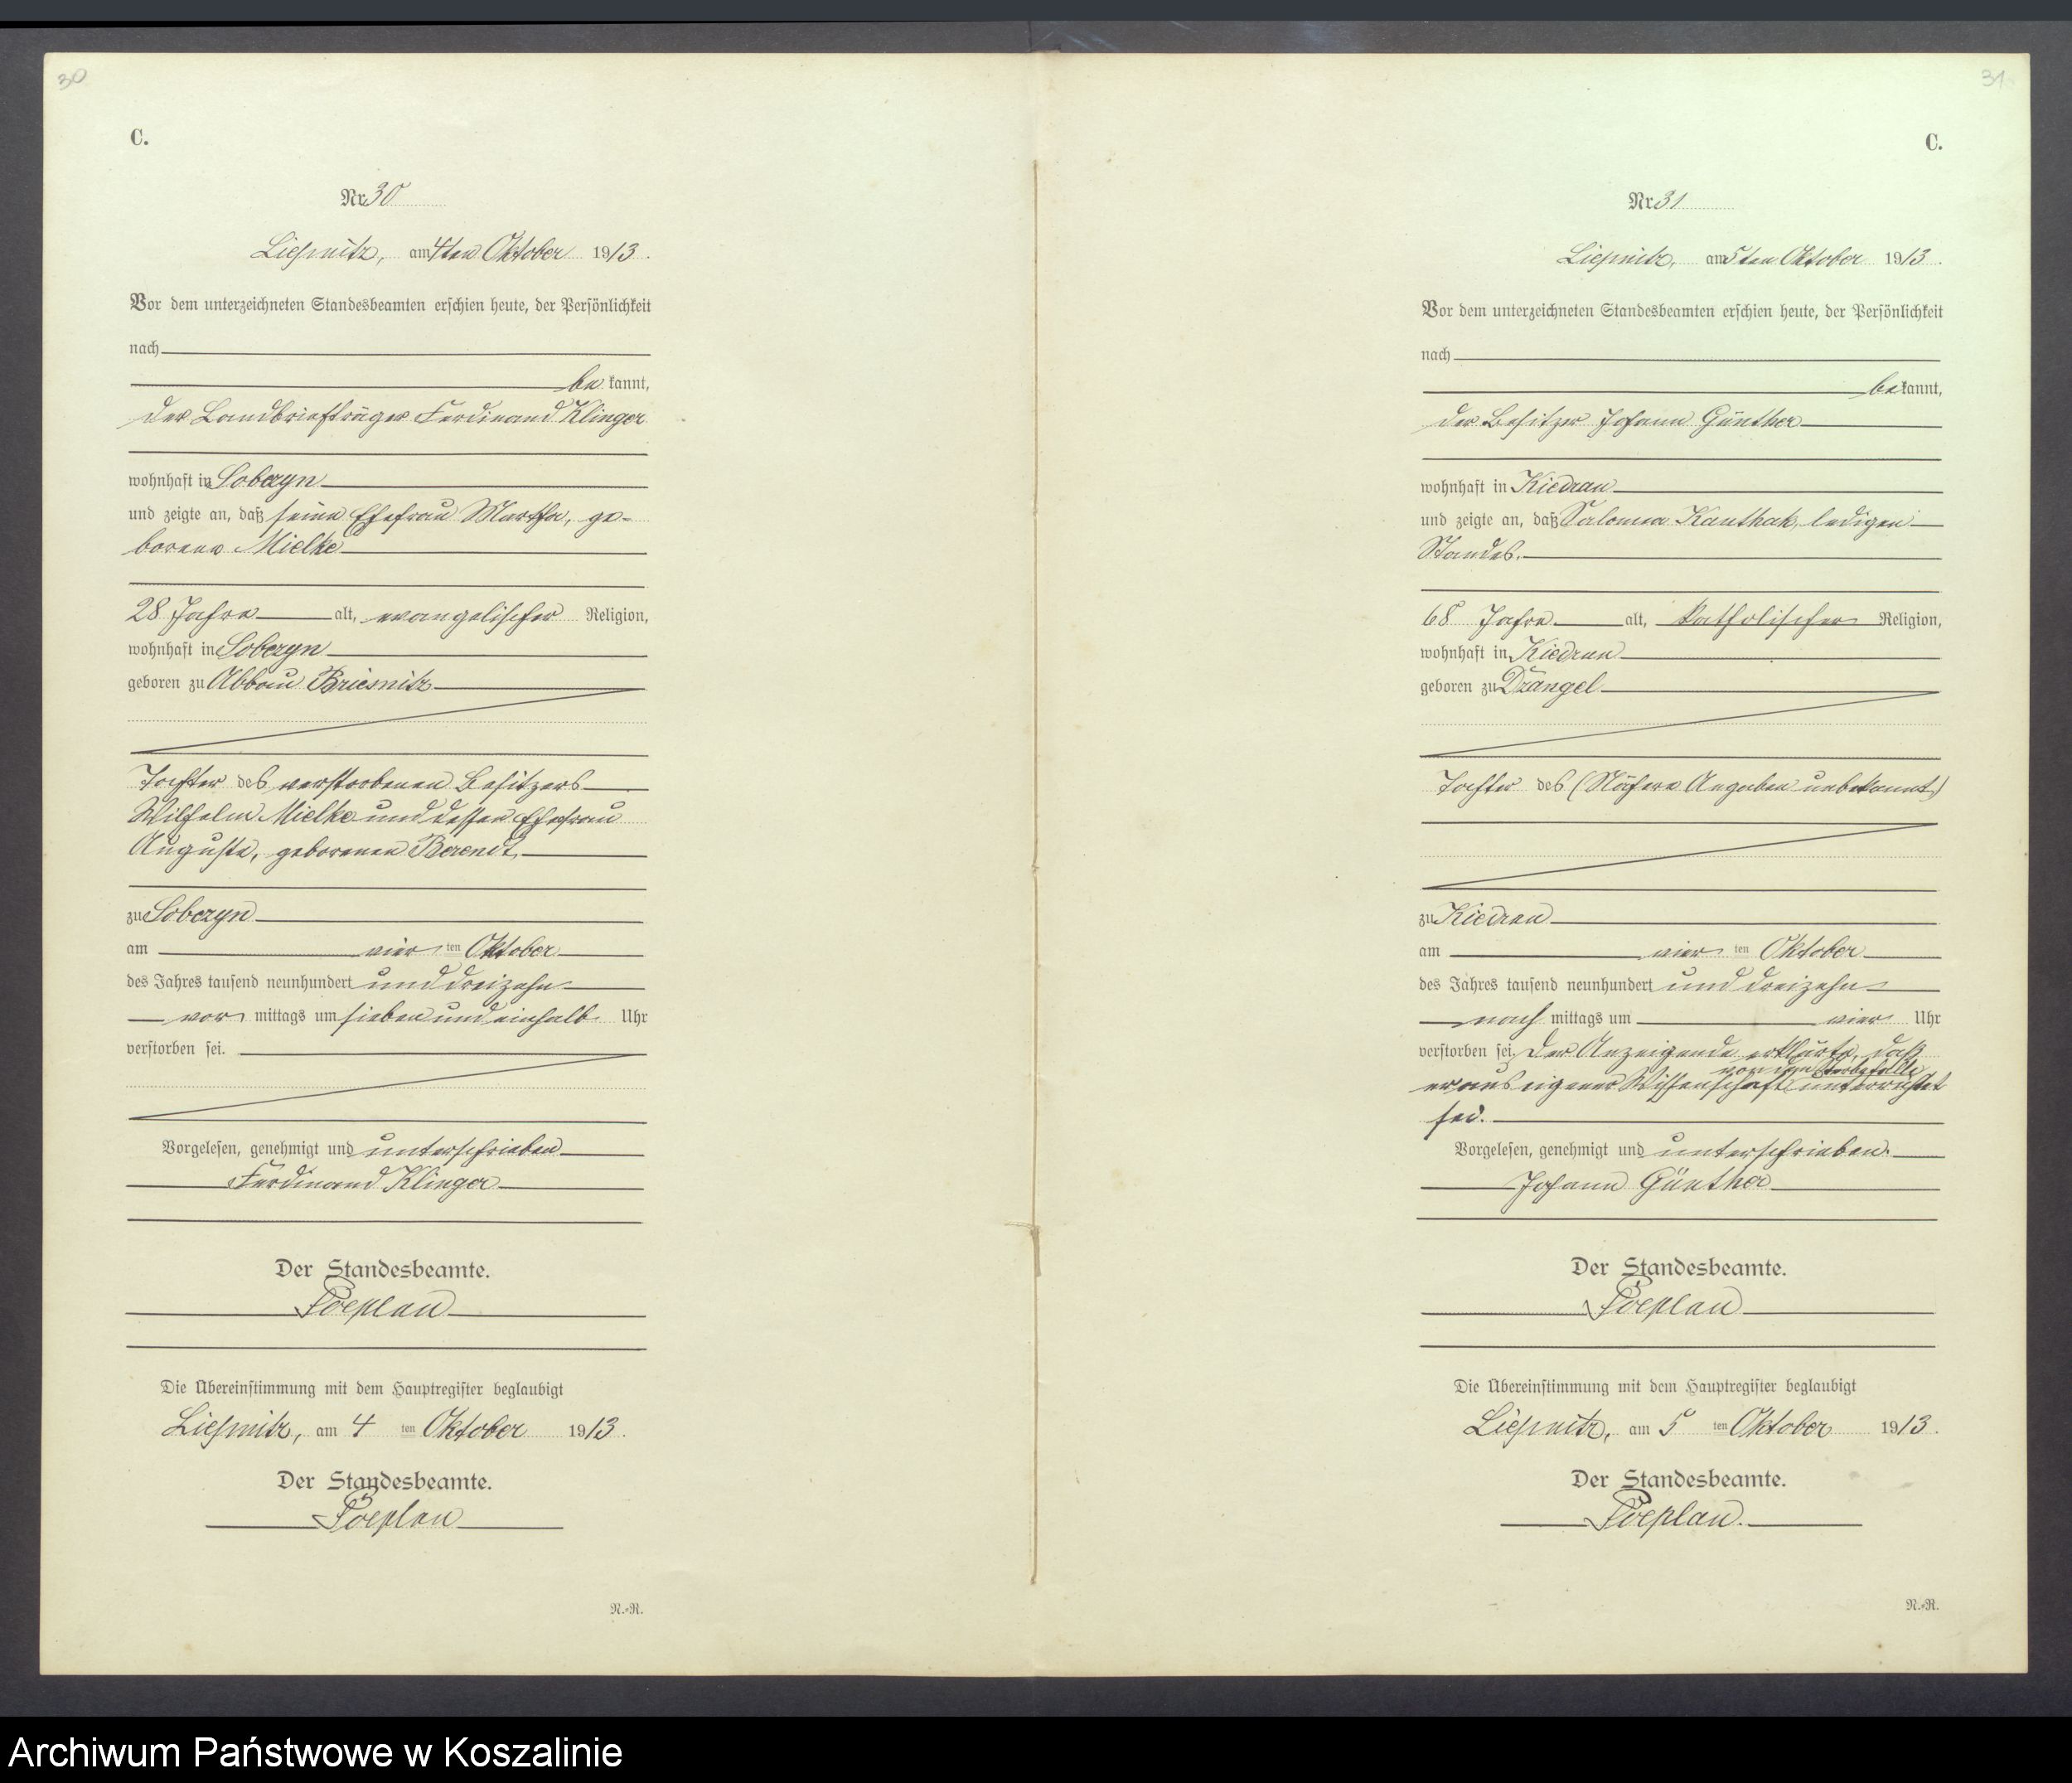 30
C.
Nr. 30
Liepnitz, am 4ten Oktober 1913.
Vor dem unterzeichneten Standesbeamten erschien heute, der Persönlichkeit
nach
be kannt,
der Landbriefträger Ferdinand Klinger
wohnhaft in Sobczyn
und zeigte an, daß seine Ehefrau Martha, ge-
borene Mielke
28 Jahre alt, evangelischer Religion,
wohnhaft in Sobczyn
geboren zu Abbau Briesnitz
Tochter des verstorbenen Besitzers
Wilhelm Mielke und dessen Ehefrau
Auguste, geborenen Berendt,
zu Sobczyn
am vier ten Oktober
des Jahres tausend neunhundert und dreizehn
vor mittags um sieben und einhalb Uhr
verstorben sei.
Vorgelesen, genehmigt und unterschrieben
Ferdinand Klinger
Der Standesbeamte.
Poeplau
Die Übereinstimmung mit dem Hauptregister beglaubigt
Liepnitz, am 4 ten Oktober 1913.
Der Standesbeamte.
Poeplau
N.-R.
31
C.
Nr. 31
Liepnitz, am 5ten Oktober 1913.
Vor dem unterzeichneten Standesbeamten erschien heute, der Persönlichkeit
nach
bekannt,
der Besitzer Johann Günther
wohnhaft in Kiedrau
und zeigte an, daß Salomea Kanthak, ledigen
Standes.
68 Jahre alt, katholischer Religion,
wohnhaft in Kiedrau
geboren zu Dzangel
Tochter des (Nähere Angaben unbekannt)
zu Kiedrau
am vier ten Oktober
des Jahres tausend neunhundert und dreizehn
nach mittags um vier Uhr
verstorben sei. Der Anzeigende erklärte, daß
von dem Sterbefalle
er aus eigener Wissenschaft unterrichtet
sei.
Vorgelesen, genehmigt und unterschrieben.
Johann Günther
Der Standesbeamte.
Poeplau
Die Übereinstimmung mit dem Hauptregister beglaubigt
Liepnitz, am 5 ten Oktober 1913.
Der Standesbeamte.
Poeplau.
N.-R.
Archiwum Państwowe w Koszalinie